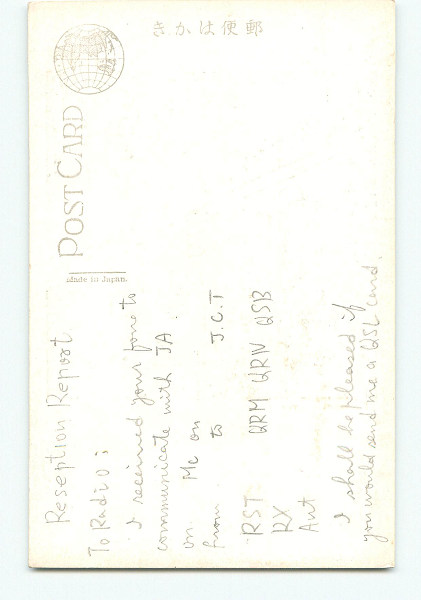 郵便はかき
POST CARD
Made in Japan.
Reseption Report
To Radio:
I received your fone to
communicate with JA.
on Mc on
from to J.C.T
RST QRM QRN QSB
RX
Ant
I shall be pleased if
you would send me a QSL card.